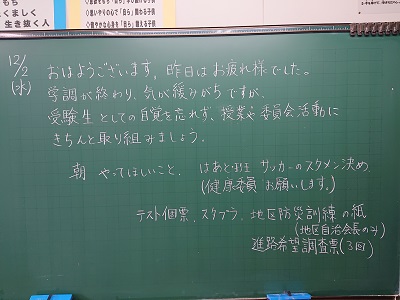 たくましく
生き抜く人
◇思いやりの心で「自ら」関わる子供
12/2
(水)
おはようございます。昨日はお疲れ様でした。
学調が終わり、気が緩みがちですが、
受験生としての自覚を忘れず、授業や委員会活動に
きちんと取り組みましょう。
朝 やってほしいこと、 サッカーのスタメン決め
(健康委員 お願いします。)
テスト個票、スタプラ、地区防災訓練の紙
(地区自治会長のみ)
進路希望調査票(3回)